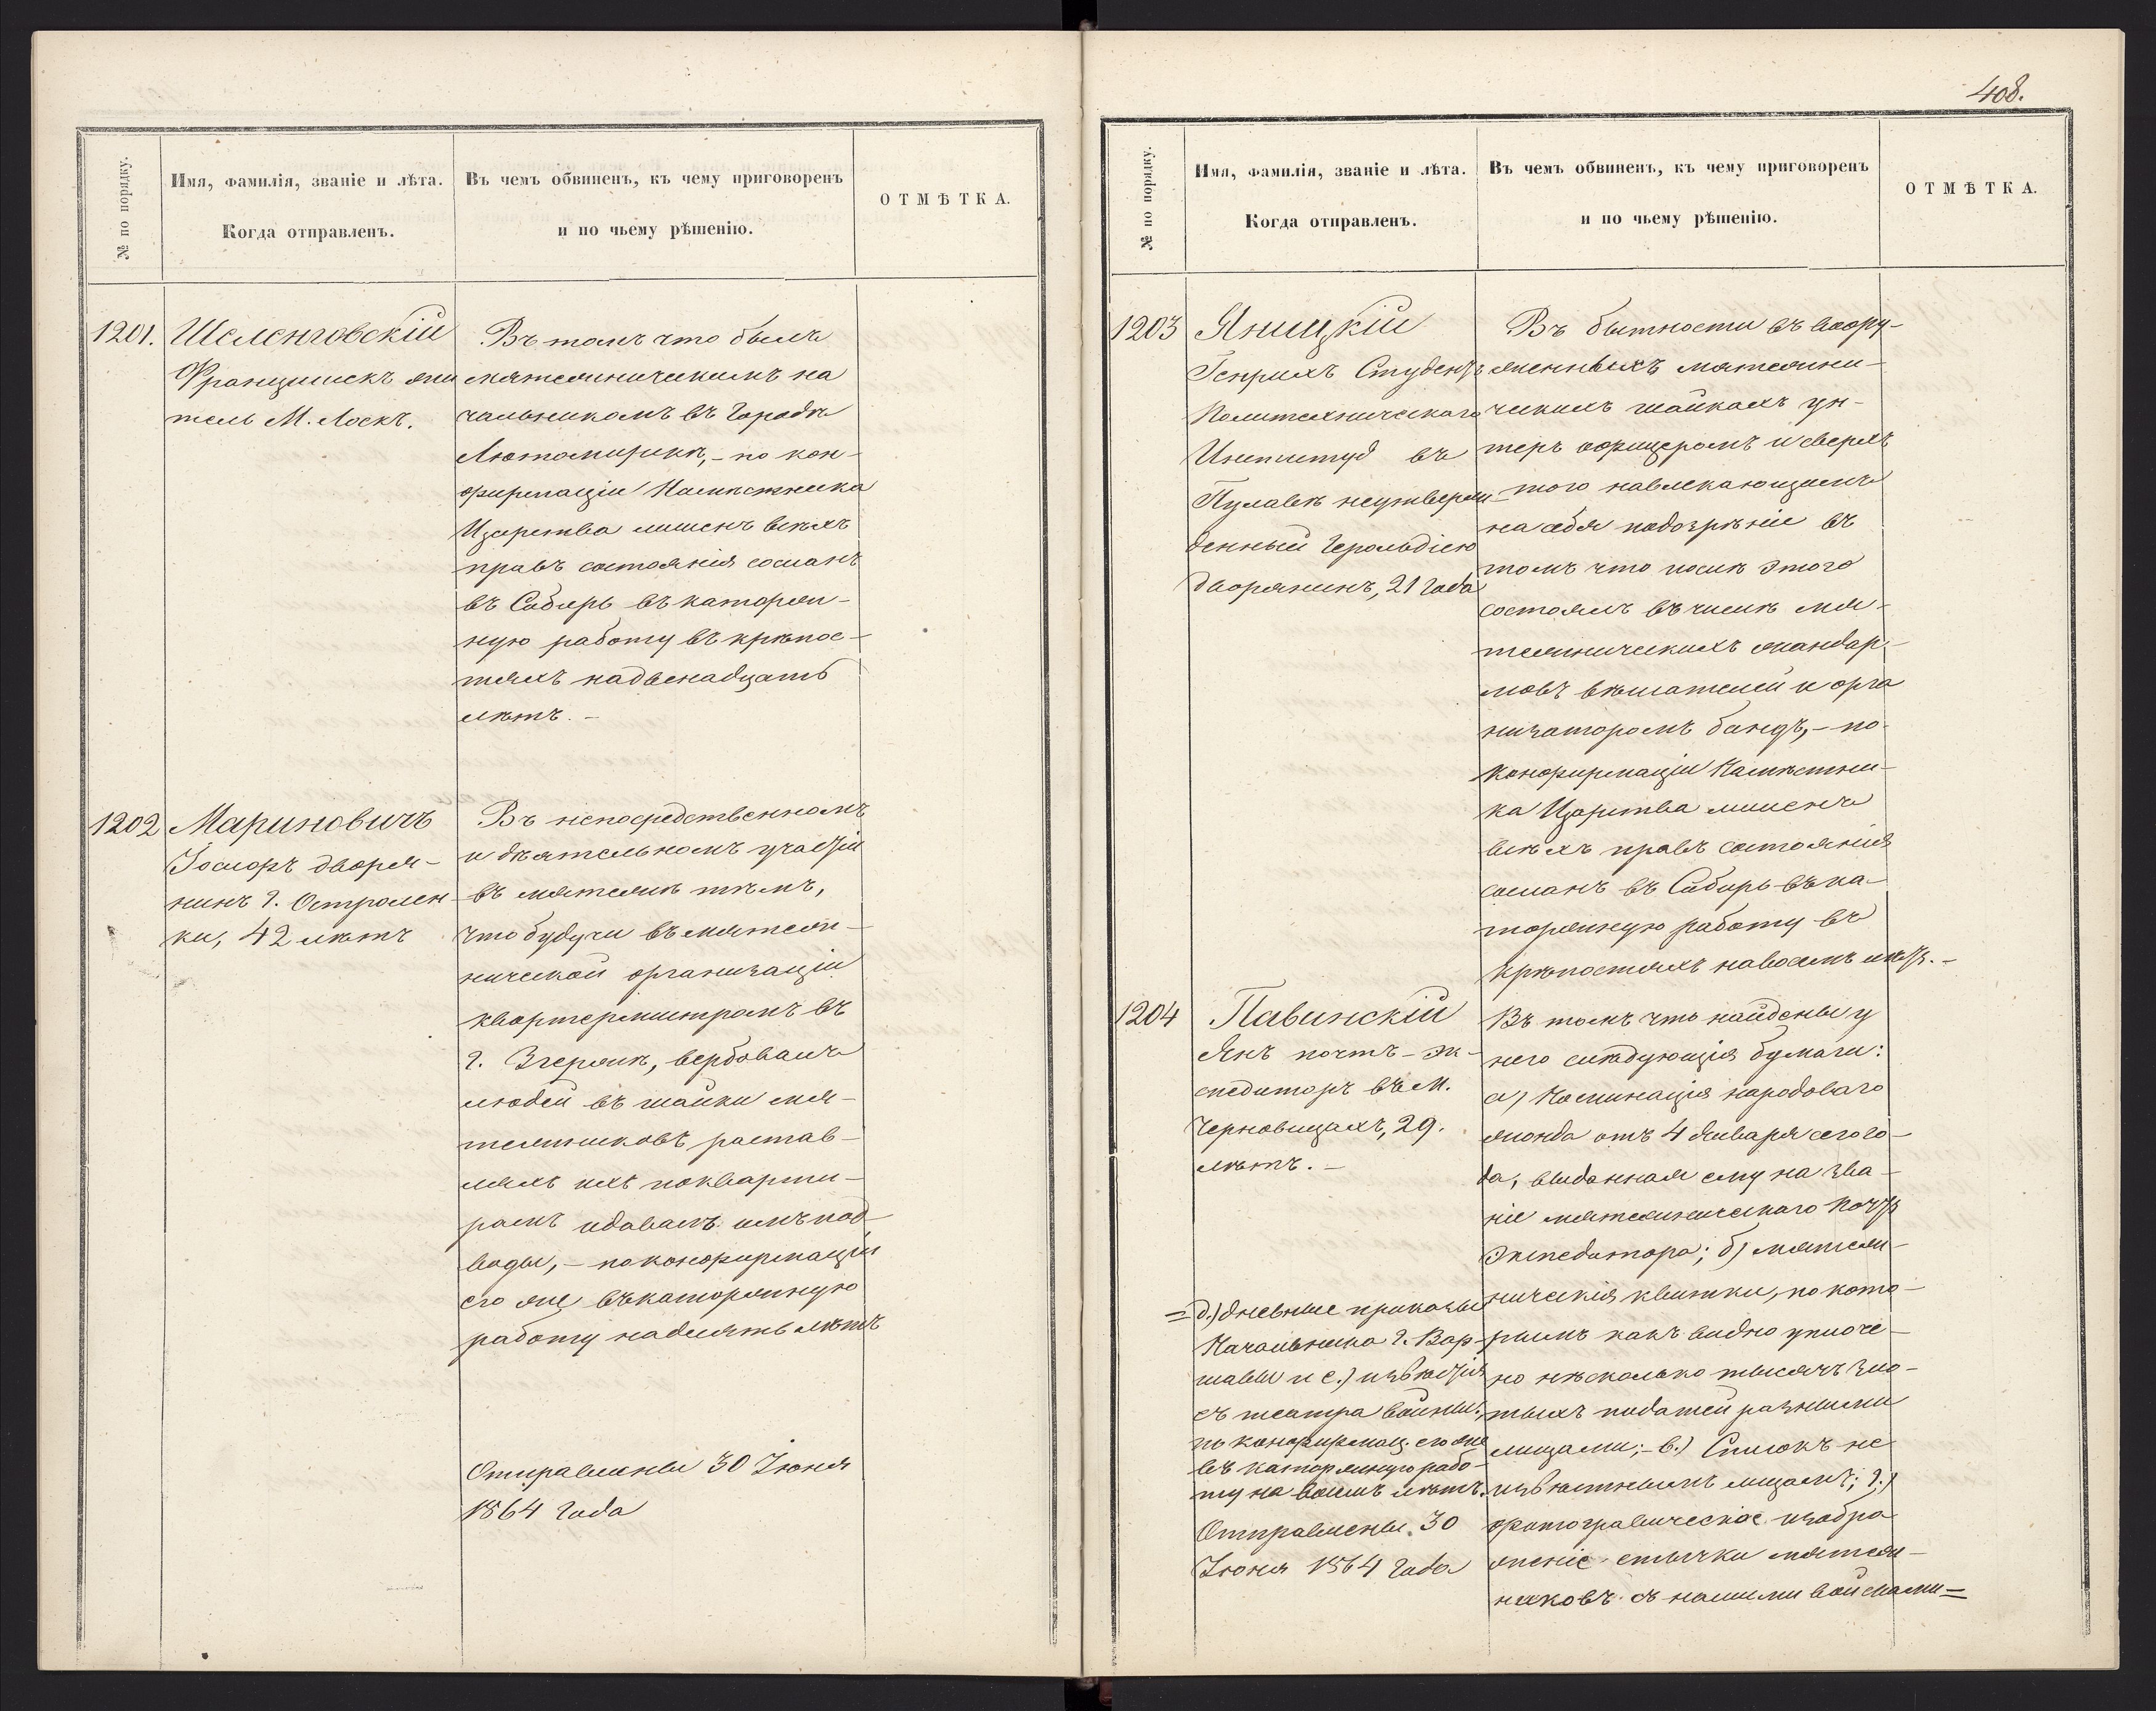 № по порядку.
Имя, фамилія, званіе и лѣта.
Когда отправленъ.
Въ чемъ обвиненъ, къ чему приговоренъ
и по чьему рѣшенію.
ОТМѢТКА.
1201.
Шеленговскій
Францишекъ жи
тель М. Лоскъ.
Въ томъ что былъ
мятежническимъ на
чальникомъ въ Городѣ
Лютомирскѣ, - по кон-
фирмаціи Намѣстника
Царства лишенъ всѣхъ
правъ состоянія сосланъ
въ Сибирь въ каторж-
ную работу въ крѣпос-
тяхъ надвенадцать
лѣтъ. -
1202
Мариновичъ
Іосифъ дворя-
нинъ г. Остролен
ки, 42 лѣтъ
Въ непосредственномъ
и дѣятельномъ участіи
въ мятежѣ тѣмъ,
что будучи въ мятеж-
нической организаціи
квартермистромъ въ
г. Згержѣ, вербовалъ
людей въ шайки мя-
тежниковъ растав-
лялъ ихъ покварти-
рамъ идавалъ имъ под-
воды, - поконфирмаціи
его же въкаторжную
работу надесять лѣтъ
Отправлены 30 Іюня
1864 года
408.
№ по порядку.
Имя, фамилія, званіе и лѣта.
Когда отправленъ.
Въ чемъ обвиненъ, къ чему приговоренъ
и по чьему рѣшенію.
ОТМѢТКА.
1203
Яницкій
Генрихъ Студентъ
Политехническаго
Институд въ
Пулавѣ неутверж-
денный Герольдіею
дворянинъ, 21 года
Въ бытности въ воору-
женныхъ мятежни-
ческихъ шайкахъ ун-
теръ офицеромъ и сверхъ
того навлекающимъ
на себя подозрѣніе въ
томъ что послѣ этого
состоялъ въ числѣ мя-
тежническихъ жандар-
мовъ вѣшателей и орга
низаторомъ бандъ, - по
конфирмаціи Намѣстни-
ка Царства лишенъ
всѣхъ правъ состоянія
сосланъ въ Сибирь въ ка-
торжную работу въ
крѣпостяхъ навосемь лѣтъ. -
1204
Павинскій
Янъ почтъ-эк-
спедиторъ въ м.
Черновицахъ, 29.
лѣтъ. -
Въ томъ что найдены у
него слѣдующія бумаги:
а) Номинація народоваго
жонда отъ 4 Января сего го-
да, выданная ему на зва-
ніе мятежническаго Почтъ
Экспедитора; б) мятеж-
ническія квитки, по кото-
рымъ какъ видно уплоче-
но нѣсколько тысячъ зло-
тыхъ податей разными
лицами; - в.) Списокъ не
извѣстнымъ лицамъ; г.)
фотографическое изобра
женіе стычки мятеж-
никовъ съ нашими войсками =
= д.) дневные приказы
Начальника г. Вар-
шавы и е.) извѣстія
съ театра войны;
по конфирмац. его же
въ каторжную рабо-
ту на восемь лѣтъ.
Отправлены. 30
Іюня 1864 года